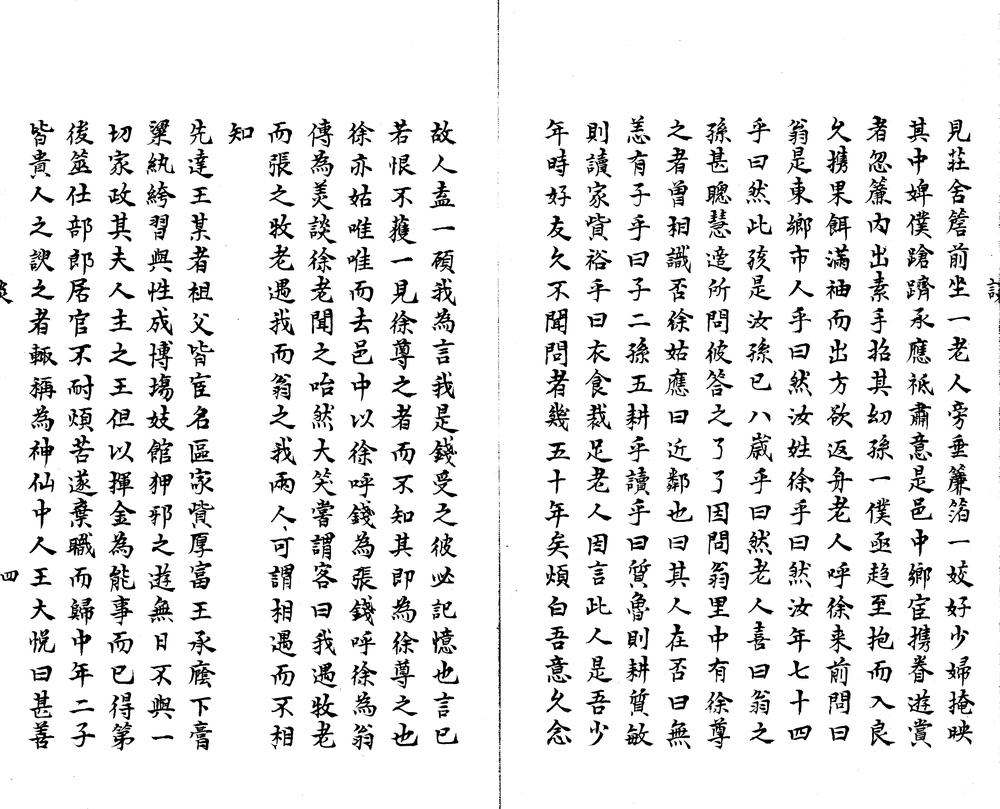 見莊舍簷前坐一老人旁垂簾箔一姣好少婦掩映
其中婢僕蹌躋承應祗肅意是邑中鄉宦攜眷遊賞
者忽簾內出素手招其幼孫一僕亟趋至抱而入良
久携果餌滿袖而出方欲返舟老人呼徐来前問曰
翁是東鄉市人乎曰然汝姓徐乎曰然汝年七十四
乎曰然此孩是汝孫已八歲乎曰然老人喜曰翁之
孫甚聰慧適所問彼答之了了因問翁里中有徐尊
之者曾相識否徐姑應曰近鄰也曰其人在否曰無
恙有子乎曰子二孫五耕乎讀乎曰質魯則耕質敏
則讀家貲裕乎曰衣食裁足老人因言此人是吾少
年時好友久不聞問者幾五十年矣煩白吾意久念
故人盍一顧我為言我是錢受之彼必記憶也言已
若恨不獲一見徐尊之者而不知其即為徐尊之也
徐亦姑唯唯而去邑中以徐呼錢為張錢呼徐為翁
傳為美談徐老聞之咍然大笑嘗謂客曰我遇牧老
而張之牧老遇我而翁之我兩人可謂相遇而不相
知
先達王某者祖父皆宦名區家貲厚富王承廕下膏
粱紈絝習與性成博塲妓館狎邪之遊無日不與一
切家政其夫人主之王但以揮金為能事而已得第
後筮仕部郎居官不耐煩苦遂棄職而歸中年二子
皆貴人之諛之者輒稱為神仙中人王大悅曰甚善
四